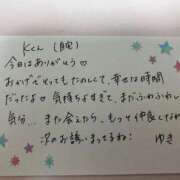 Kくん (自宅)
今日はありがとう♡
おかげでとってもたのしくて、幸せな時間
だったよ♡ 気持ちよすぎて、まだふわふわし
気分… また会えたら、もっと仲良しなか
次のお誘いまってるね♡
ゆき